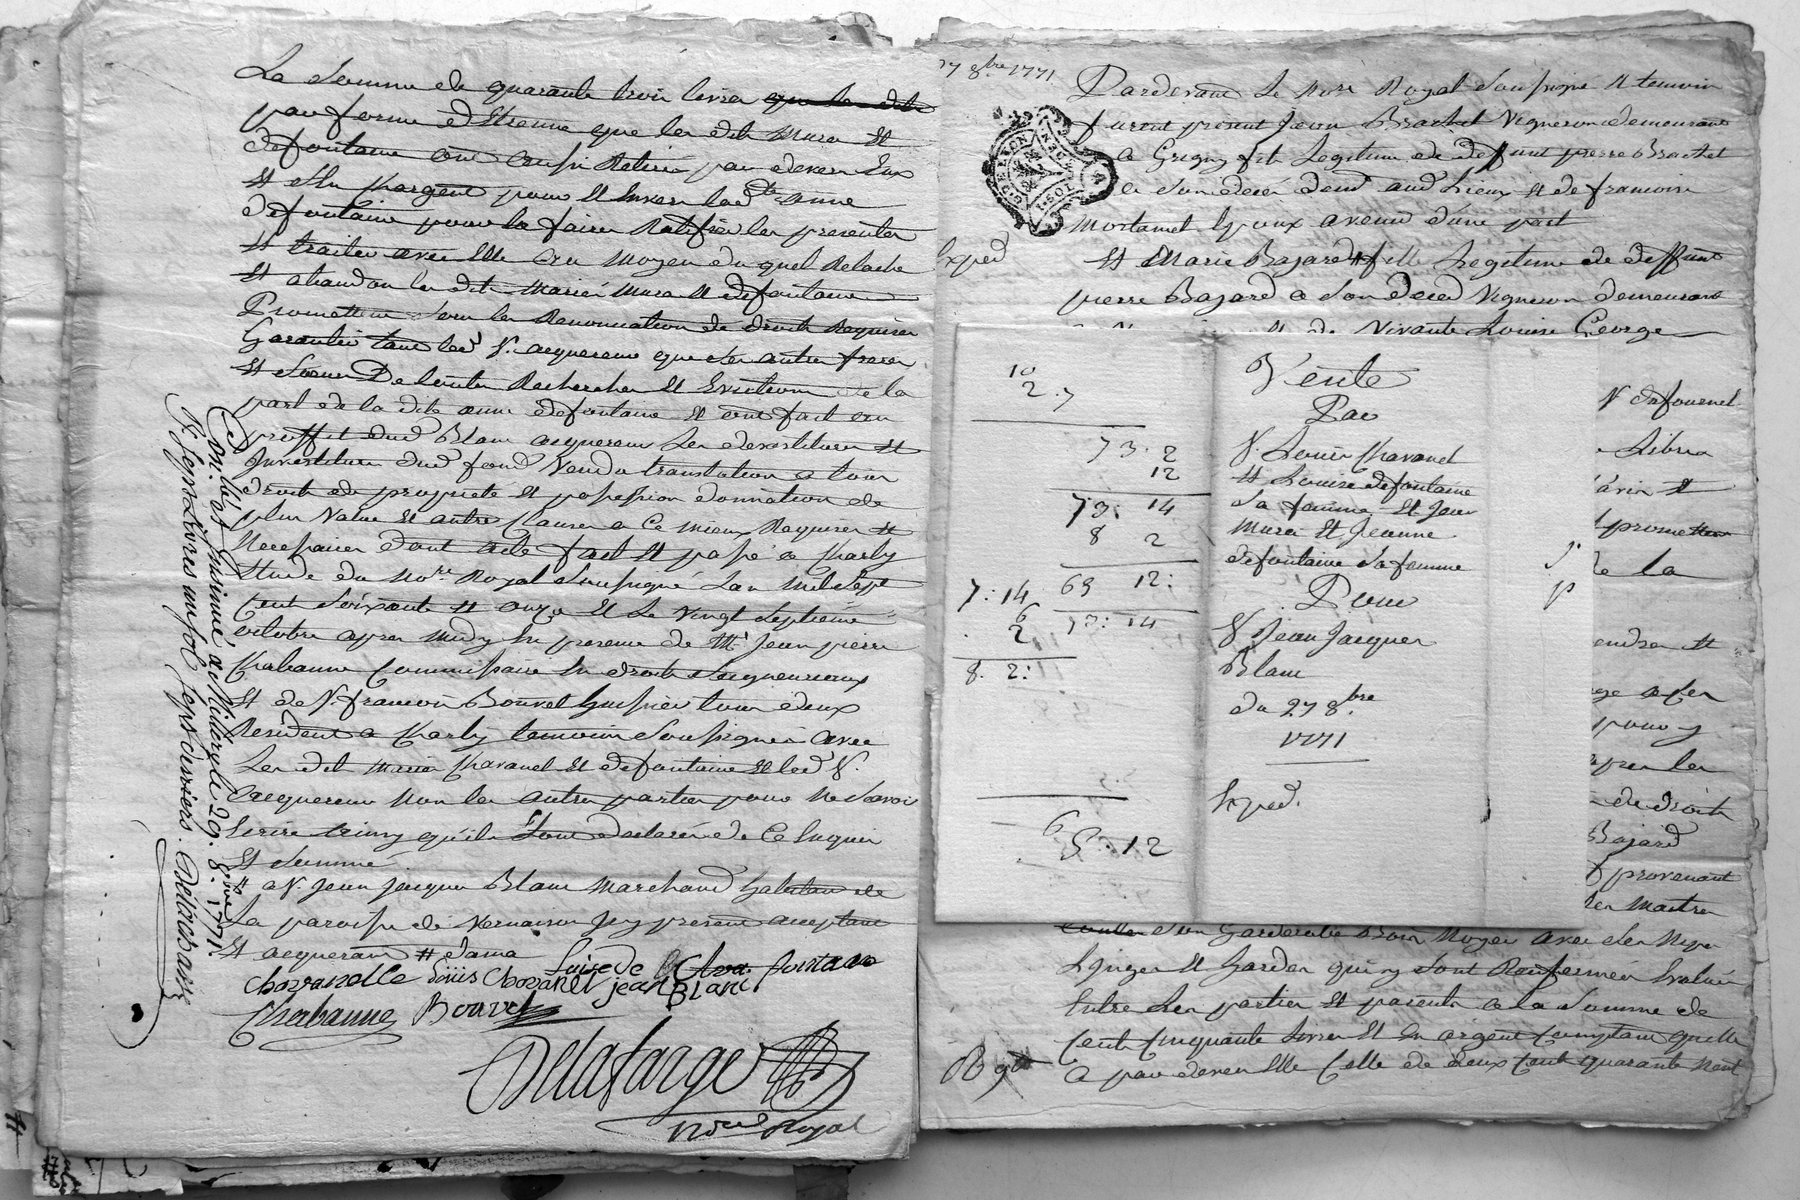 La somme de quarante trois livres que les dits
par forme d'Etienne que les dits Mura et
defontaine ont aussi Retiré par devers Eux
et s'en Chargent pour et Envers lad.te anne
defontaine pour la faire Ratifier les presentes
et traiter avec Elle au moyen du quel Relache
et abandon les dits mariés Mura et defontaine
Promettent sous les Renonciation de droits Requises
Garantir tant led.t S.r acquereur que ses autres freres
et soeurs De toutes Recherches et Evictions de la
part de la dite anne defontaine et ont fait au
proffit dud.t Blanc acquereur les devestiture et
Investiture dud.t fond Vendu translation a tous
droits de proprieté et possession donnation de
plus Value et autres Clauses a Ce mieux Requises et
Necessaires dont acte fait et passé a Charly
Etude du No.re Royal soussigné L'an mil sept
Cent soixante et onze et Le vingt septieme
octobre apres midy En presence de M.e Jean pierre
Chabanne Commissaire En droits seigneuriaux
et de S.r francois Bouvet huissier tous deux
Residents a Charly temoins soussignés avec
Les dits mariés Chavanel et defontaine et led.t S.r
acquereur Non les autres parties pour ne savoir
Ecrire ainsy qu'ils l'ont declaré de Ce Enquis
et sommé
# a S.r Jean Jacques Blanc Marchand habitant de
La paroisse de Vernaison Icy present acceptant
et acquerant #
chavanelle Loüis Chavanel Luise de fontane
jean BLANC
Chabanne Bouvet
Delafarge
No.re Royal
Con.lé et Insinué a Millery le 29. 8bre 1771.
R. Sept Livres un sol sept deniers. Delachassa
27 8.bre 1771
Pardevant Le No.re Royal soussigné et temoins
furent present Jean Brachet Vigneron demeurant
a Grigny fils Legitime de deffunt pierre Brachet
a son deces dem.t aud.t Lieux et de francoise
mortamet Epoux avenir d'une part
Exped
Et Marie Bajard fille Legitime de deffunt
pierre Bajard a son deces Vigneron demeurant
et de Vivante Louise George
10
2.7
73. 2
12
73. 14
8 2
65 12:
7: 14
6
2
73: 14
8. 2:
65: 12
Vente
Par
S.r Louis Chavanel
et Louise defontaine
sa femme et Jean
Mura et Jeanne
defontaine sa femme
Pour
S.r Jean Jacques
Blanc
du 27 8.bre
1771
Exped.
promettent
de la
pour y
de droits
Bajard
provenant
son Garderobe Bois Noyer avec ses
Linges et hardes qui y sont Renfermées Evalué
Entre Les parties et parents a La somme de
Cent Cinquante Livres et En argent Comptant quelle
a par devers Elle Celle de deux Cent quarante neuf